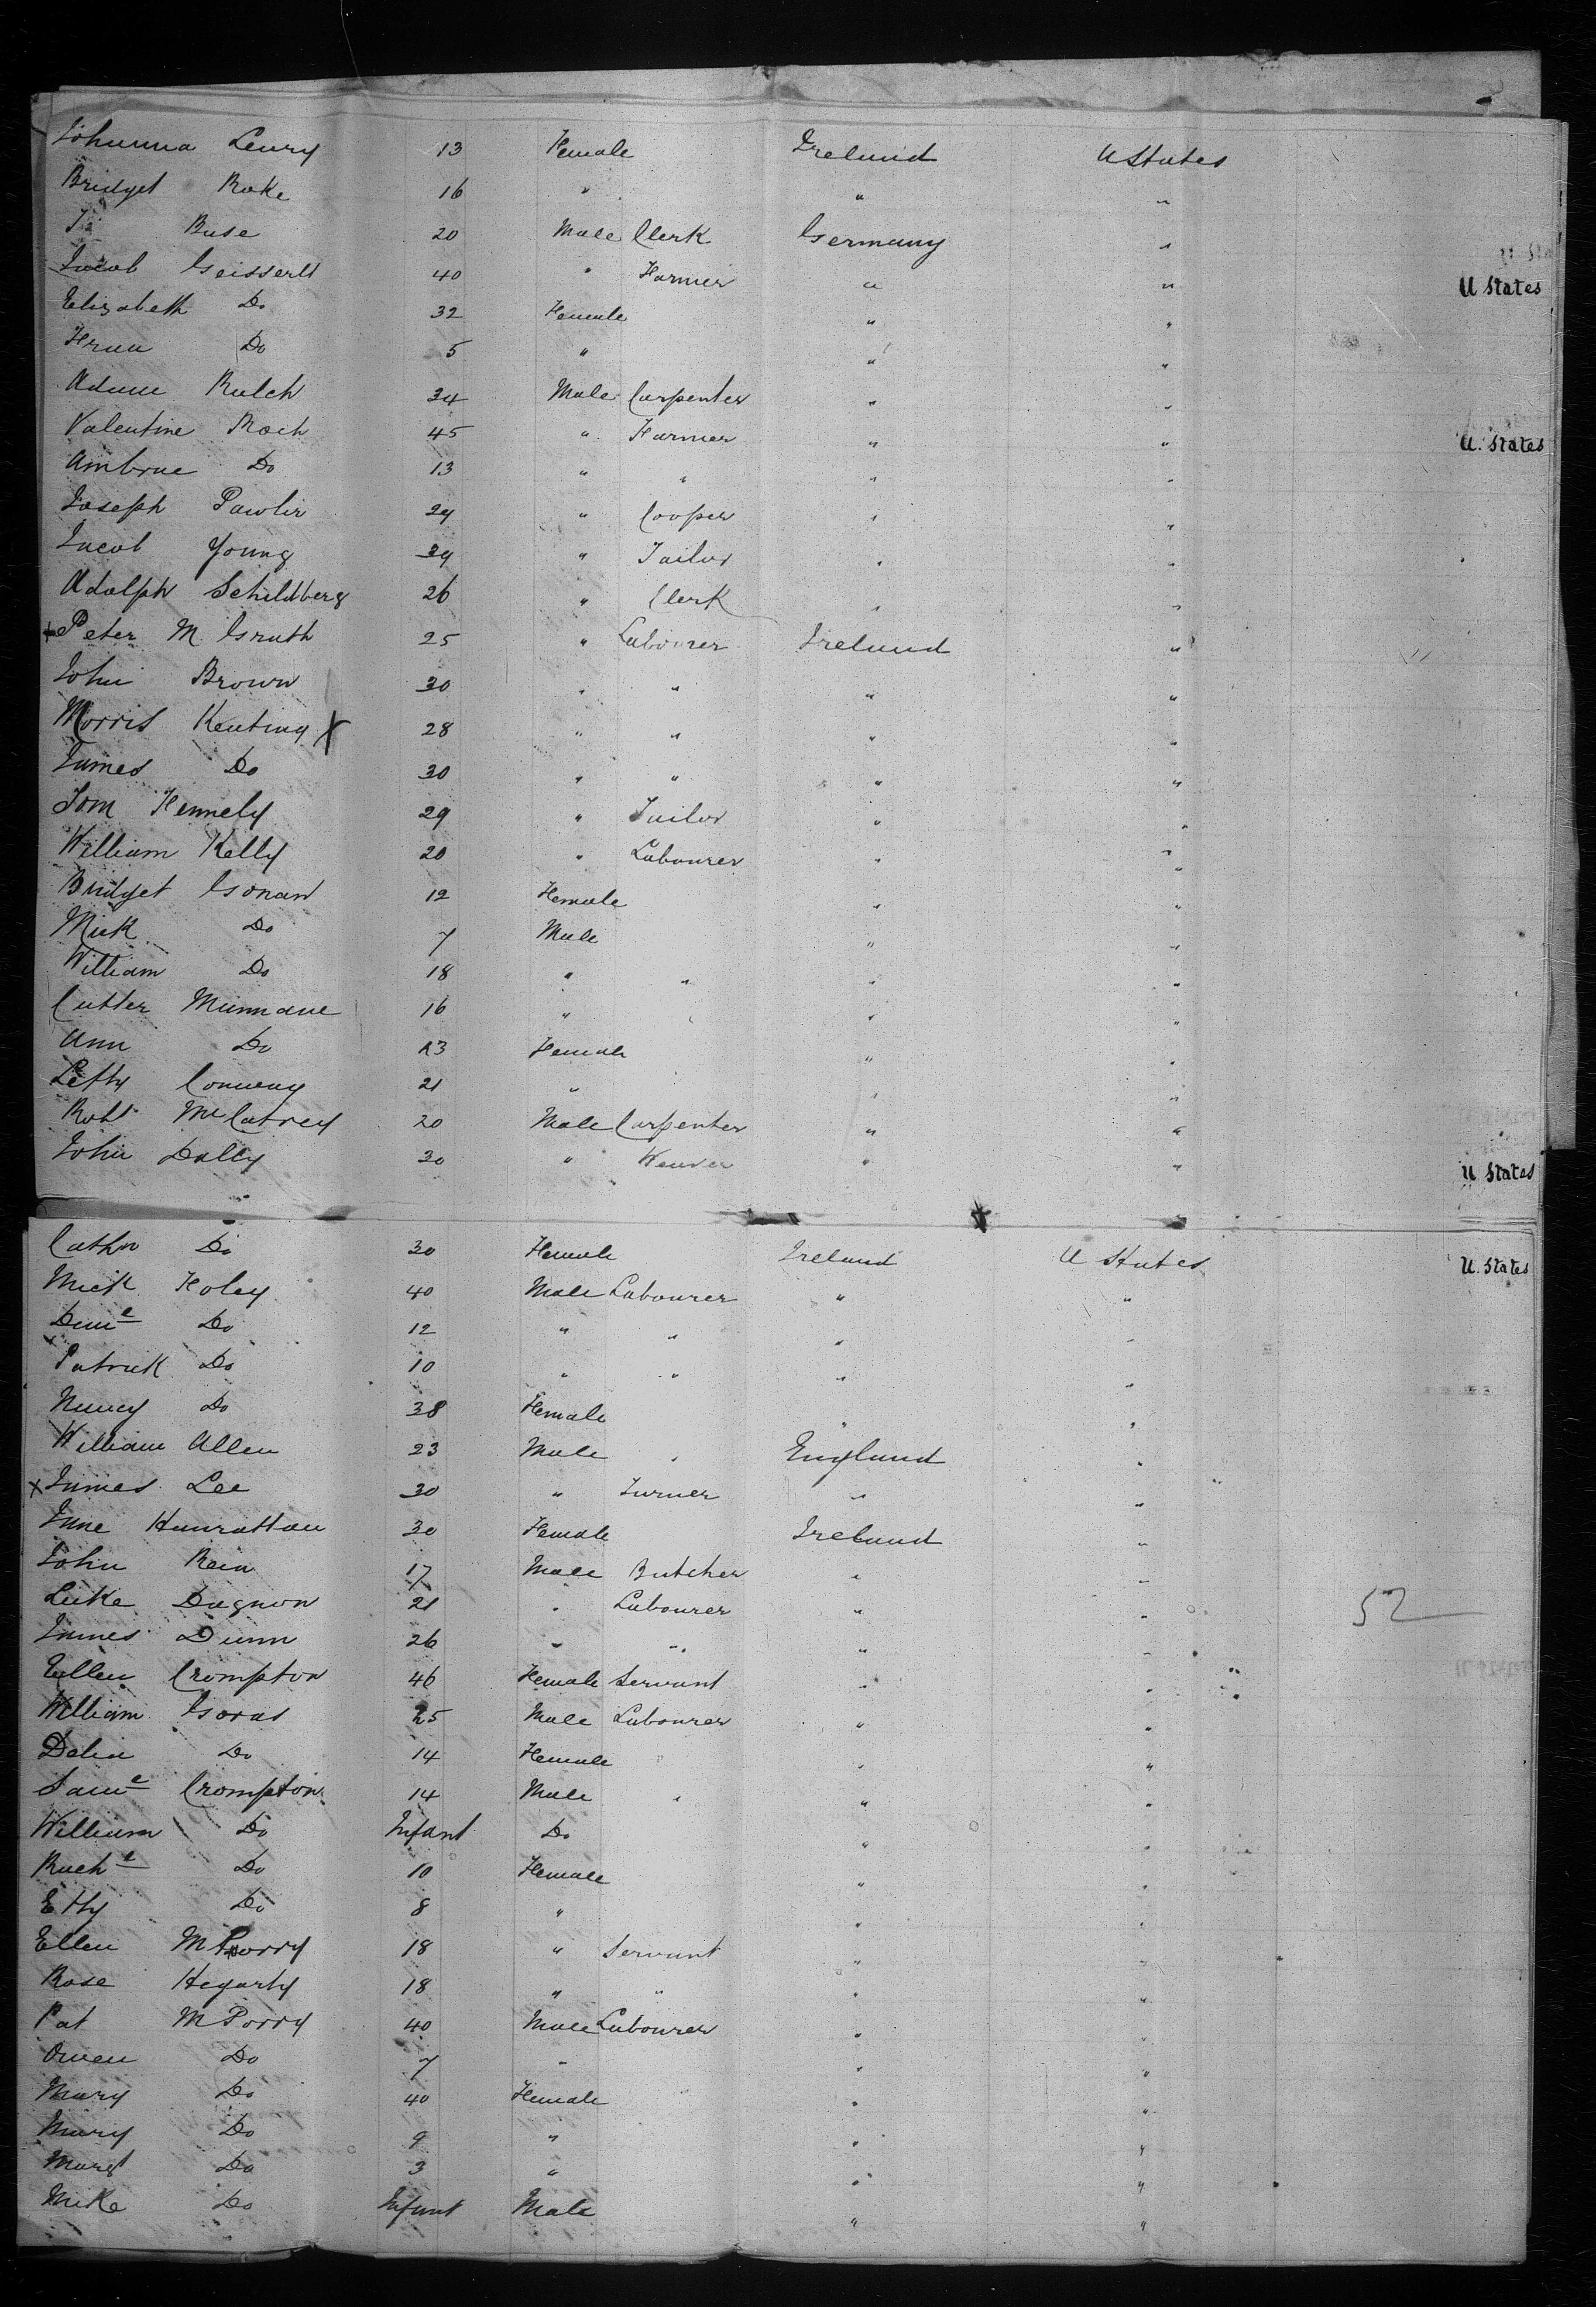 Johanna Leary 13 Female Ireland U States
Bridget Roke 16 " " "
J. Buse 20 Male Clerk Germany "
Jacob Geisserlt 40 " Farmer " " U States
Elizabeth Do 32 Female " "
Frau Do 5 " " "
Adam Rulch 34 Male Carpenter " "
Valentine Roch 45 " Farmer " " U. States
Ambrue Do 13 " " " "
Joseph Pawlir 24 " Cooper " "
Jacob Young 24 " Tailor " "
Adolph Schildberg 26 " Clerk " "
+ Peter M. Grath 25 " Labourer Ireland "
John Brown 30 " " " "
Morris Keating X 28 " " " "
James Do 30 " " " "
Tom Fennely 29 " Tailor " "
William Kelly 20 " Labourer " "
Bridget Gonan 12 Female " "
Mick Do 7 Male " "
William Do 18 " " " "
Cutter Munnane 16 " " " "
Ann Do 13 Female " "
Letty Conway 21 " " "
Robt McCatrey 20 Male Carpenter " "
John Dolly 30 " Weaver " " U States
Cathn Do 30 Female Ireland U States U. States
Mick Foley 40 Male Labourer " "
Danl Do 12 " " " "
Patrick Do 10 " " " "
Nancy Do 38 Female " "
William Allen 23 Male " England "
x James Lee 30 " Turner " "
Jane Hanrattan 30 Female Ireland "
John Rein 17 Male Butcher " "
Luke Dagnon 21 " Labourer " " 52
James Dunn 26 " " " "
Ellen Crompton 46 Female Servant " "
William Goras 25 Male Labourer " "
Delia Do 14 Female " "
Saml Crompton 14 Male " " "
William Do Infant Do " "
Rachl Do 10 Female " "
Etty Do 8 " " "
Ellen M Porry 18 " Servant " "
Rose Hegarty 18 " " " "
Pat M Porry 40 Male Labourer " "
Owen Do 7 " " "
Mary Do 40 Female " "
Mary Do 9 " " "
Margt Do 3 " " "
Mike Do Infant Male " "